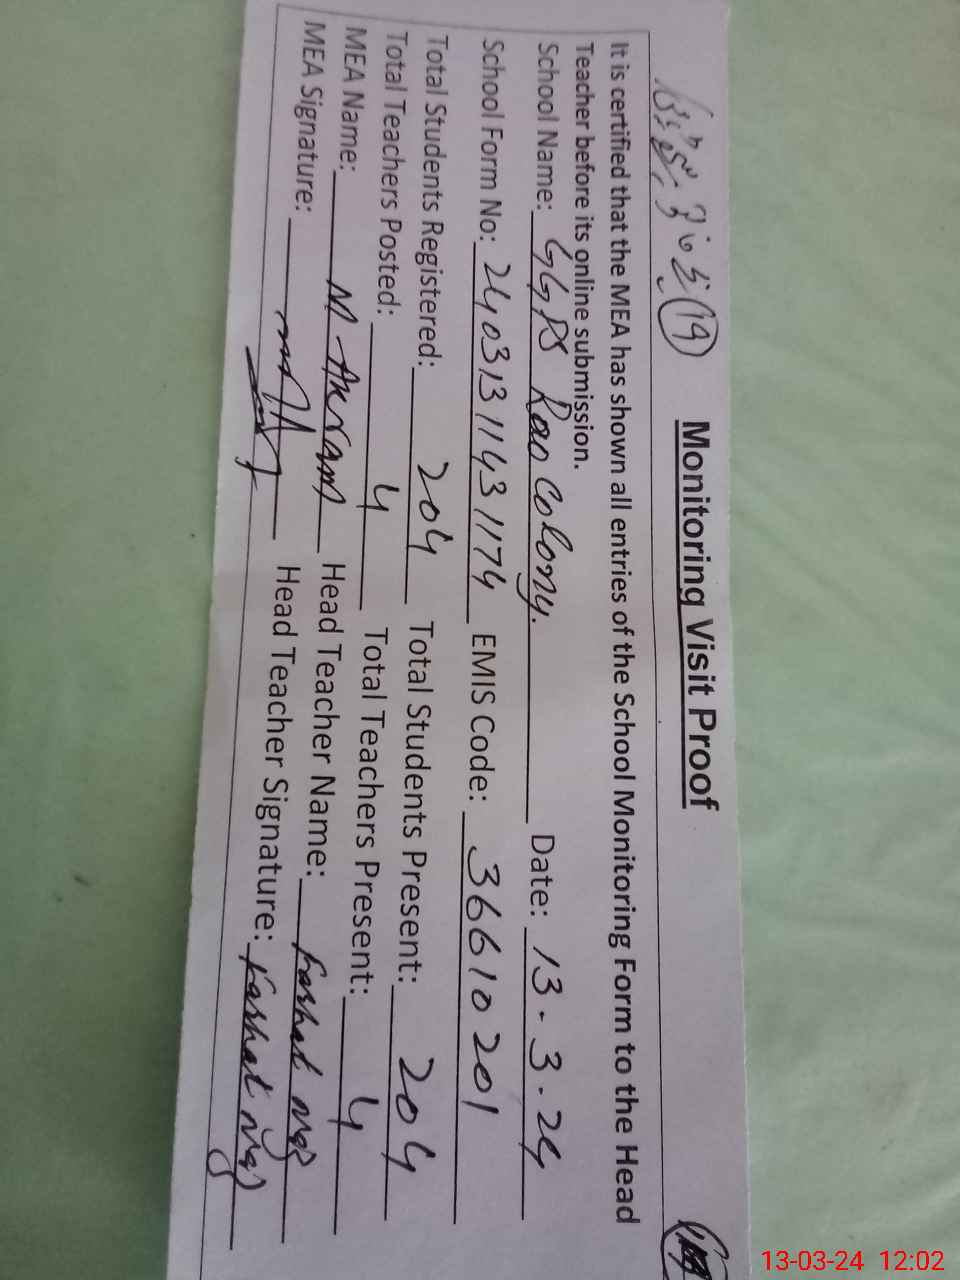 19
Monitoring Visit Proof
It is certified that the MEA has shown all entries of the School Monitoring Form to the Head
Teacher before its online submission.
School Name: GGPS Rao Colony. Date: 13-3-24
School Form No: 2403131143 1174 EMIS Code: 36610201
Total Students Registered: 204 Total Students Present: 204
Total Teachers Posted: 4 Total Teachers Present: 4
MEA Name: M Akram Head Teacher Name: Farhat
MEA Signature: Head Teacher Signature: Farhat
13-03-24 12:02